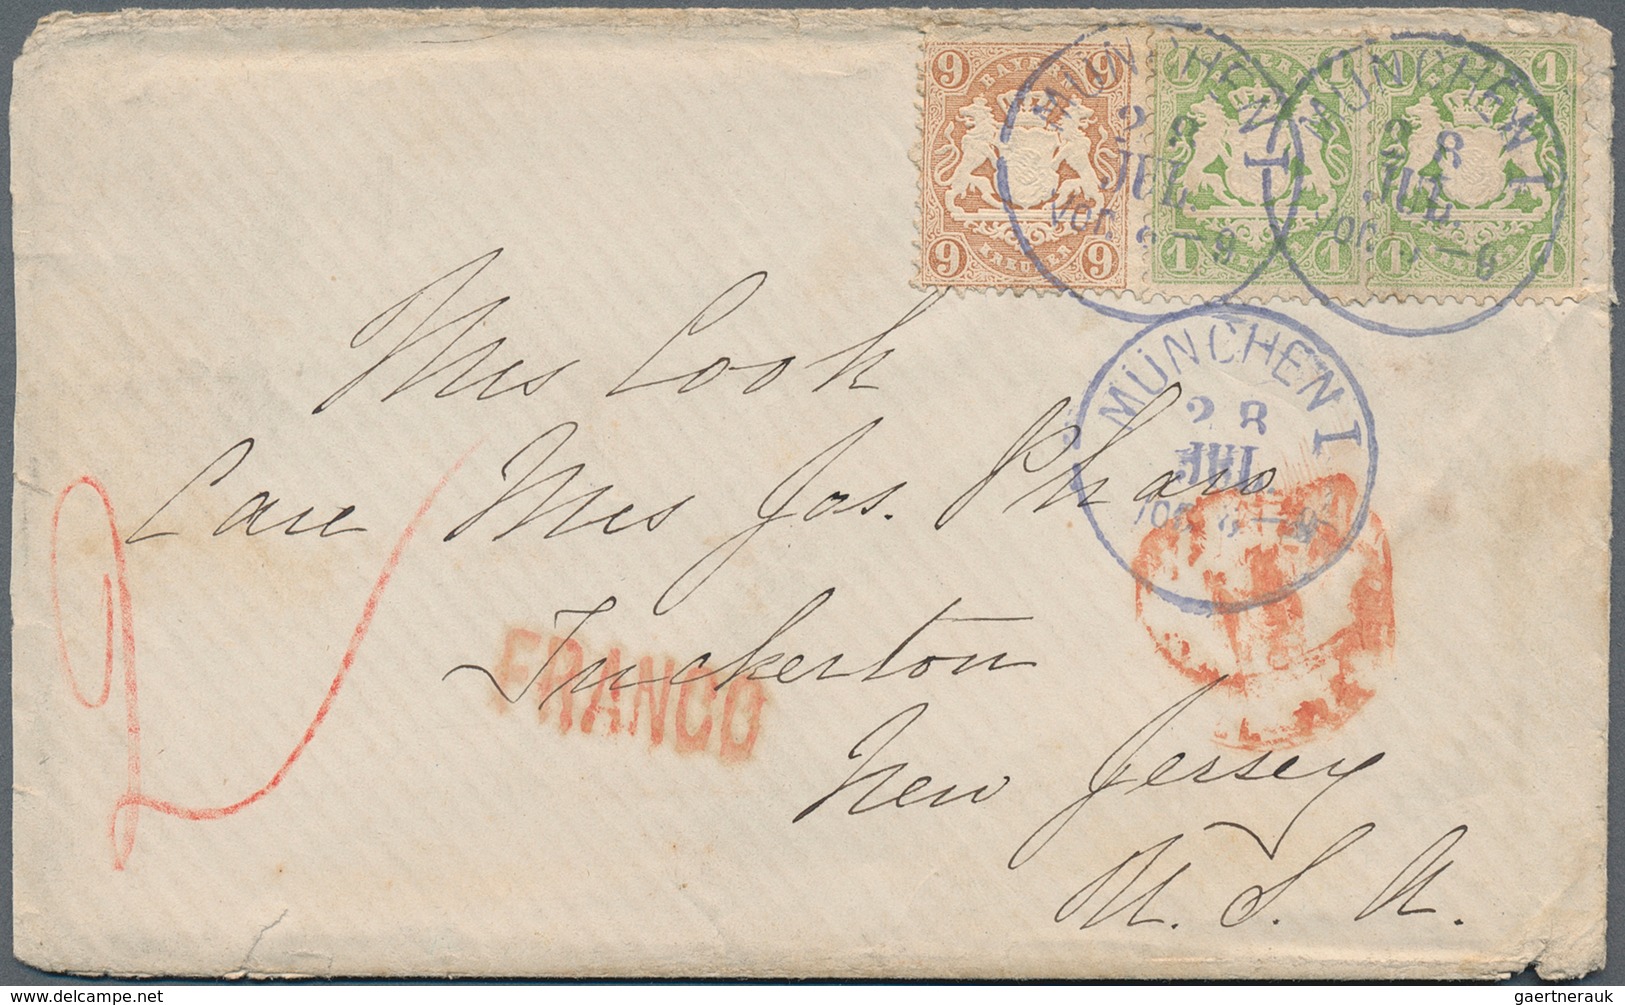 9 9
BAYERN
9 9
KREUZER
1 1
1 1
1 1
BAYERN
1 1
MÜNCHEN I
28
JUL.
Vor. 8-9
MÜNCHEN I
28
JUL.
Vor. 8-9
MÜNCHEN I
28
JUL.
Vor. 8-9
Mrs Cook
Care Mrs Jos. Pharo
FRANCO
Tuckerton
New Jersey
U. S. A.
2
delcampe.net
gaertnerauk